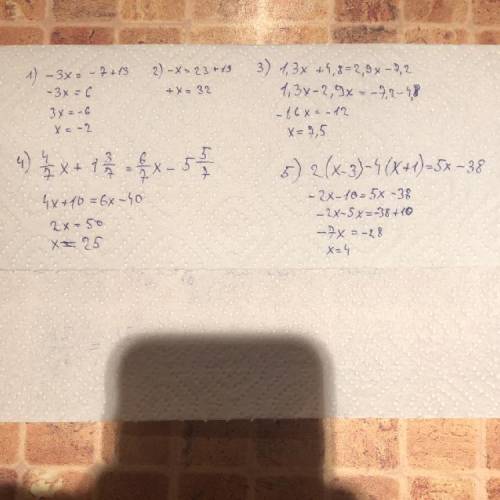 1) -3x = -7+13
-3x = 6
3x = -6
x = -2
2) -x = 23+19
+x = 32
3) 1,3x +4,8=2,9x-7,2
1,3x-2,9x=-7,2-4,8
-1,6x = -12
x = 7,5
4) 4/7 x + 1 3/7 = 6/7 x - 5 5/7
4x+10=6x-40
2x = 50
x = 25
5) 2(x-3)-4(x+1)=5x-38
-2x-10=5x-38
-2x-5x=-38+10
-7x = -28
x=4